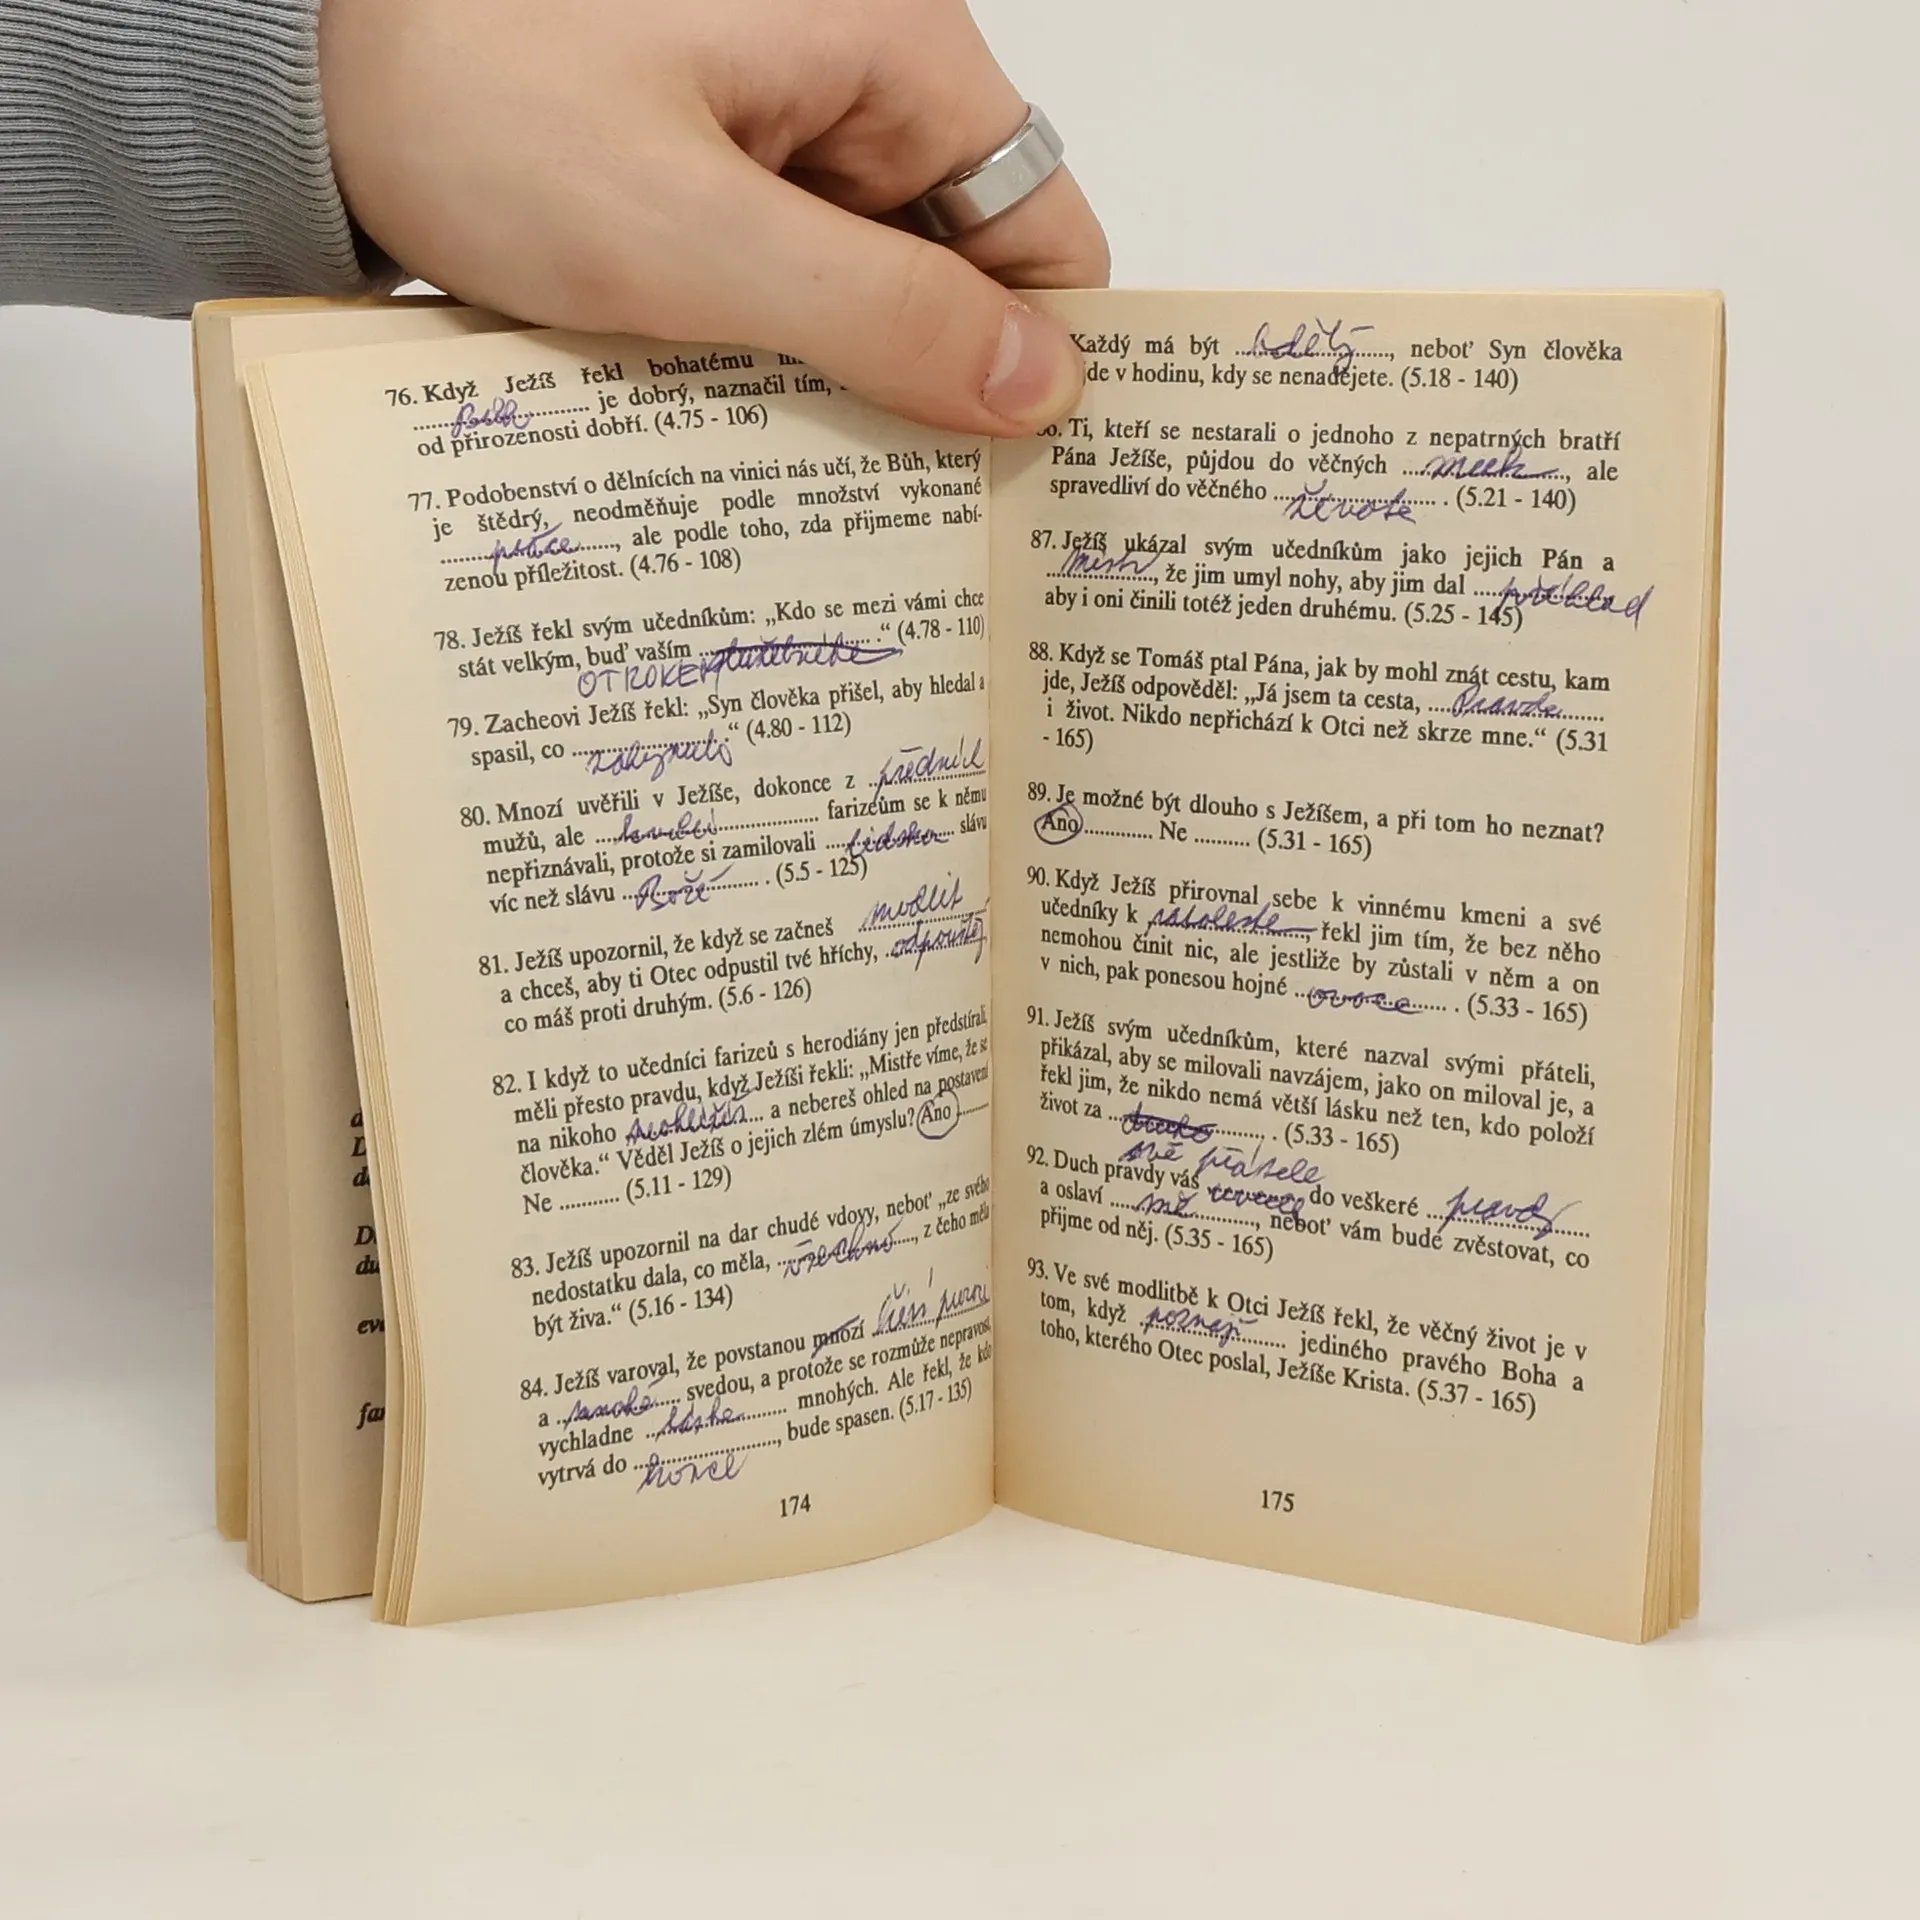 76. Když Ježíš řekl bohatému
........................ je dobrý, naznačil tím,
od přirozenosti dobří. (4.75 - 106)
77. Podobenství o dělnících na vinici nás učí, že Bůh, který
je štědrý, neodměňuje podle množství vykonané
práce, ale podle toho, zda přijmeme nabí-
zenou příležitost. (4.76 - 108)
78. Ježíš řekl svým učedníkům: „Kdo se mezi vámi chce
stát velkým, buď vaším služebníkem.“ (4.78 - 110)
OTROKEM
79. Zacheovi Ježíš řekl: „Syn člověka přišel, aby hledal a
spasil, co zahynulo.“ (4.80 - 112)
80. Mnozí uvěřili v Ježíše, dokonce z předních
mužů, ale kvůli farizeům se k němu
nepřiznávali, protože si zamilovali lidskou slávu
víc než slávu Boží. (5.5 - 125)
81. Ježíš upozornil, že když se začneš modlit
a chceš, aby ti Otec odpustil tvé hříchy, odpouštěj
co máš proti druhým. (5.6 - 126)
82. I když to učedníci farizeů s herodiány jen předstírali,
měli přesto pravdu, když Ježíši řekli: „Mistře víme, že se
na nikoho neohlížíš a nebereš ohled na postavení
člověka.“ Věděl Ježíš o jejich zlém úmyslu? Ano ........
Ne ........... (5.11 - 129)
83. Ježíš upozornil na dar chudé vdovy, neboť „ze svého
nedostatku dala, co měla, všechno, z čeho měla
být živa.“ (5.16 - 134)
84. Ježíš varoval, že povstanou mnozí lživí proroci
a mnohé svedou, a protože se rozmůže nepravost,
vychladne láska mnohých. Ale řekl, že kdo
vytrvá do ........................, bude spasen. (5.17 - 135)
konce
174
Každý má být bdělý, neboť Syn člověka
jde v hodinu, kdy se nenadějete. (5.18 - 140)
86. Ti, kteří se nestarali o jednoho z nepatrných bratří
Pána Ježíše, půjdou do věčných muk, ale
spravedliví do věčného života. (5.21 - 140)
87. Ježíš ukázal svým učedníkům jako jejich Pán a
Mistr, že jim umyl nohy, aby jim dal příklad
aby i oni činili totéž jeden druhému. (5.25 - 145)
88. Když se Tomáš ptal Pána, jak by mohl znát cestu, kam
jde, Ježíš odpověděl: „Já jsem ta cesta, Pravda
i život. Nikdo nepřichází k Otci než skrze mne.“ (5.31
- 165)
89. Je možné být dlouho s Ježíšem, a při tom ho neznat?
Ano ............. Ne .......... (5.31 - 165)
90. Když Ježíš přirovnal sebe k vinnému kmeni a své
učedníky k ratoleste, řekl jim tím, že bez něho
nemohou činit nic, ale jestliže by zůstali v něm a on
v nich, pak ponesou hojné ovoce. (5.33 - 165)
91. Ježíš svým učedníkům, které nazval svými přáteli,
přikázal, aby se milovali navzájem, jako on miloval je, a
řekl jim, že nikdo nemá větší lásku než ten, kdo položí
život za ........................ . (5.33 - 165)
své přátele
92. Duch pravdy vás uvede do veškeré pravdy
a oslaví mě, neboť vám bude zvěstovat, co
přijme od něj. (5.35 - 165)
93. Ve své modlitbě k Otci Ježíš řekl, že věčný život je v
tom, když poznají jediného pravého Boha a
toho, kterého Otec poslal, Ježíše Krista. (5.37 - 165)
175